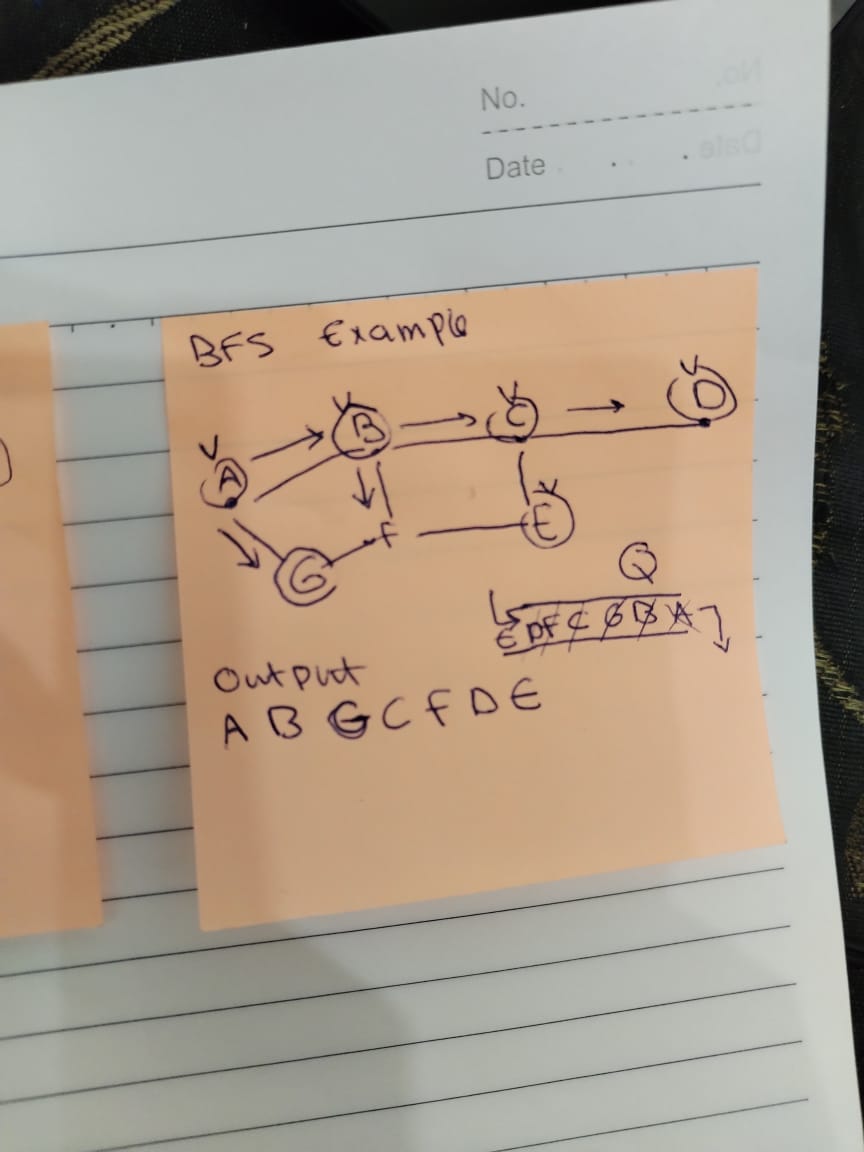 No.
Date
BFS Example
A B C D
G F E
Q
E D F C G B A
Output
A B G C F D E